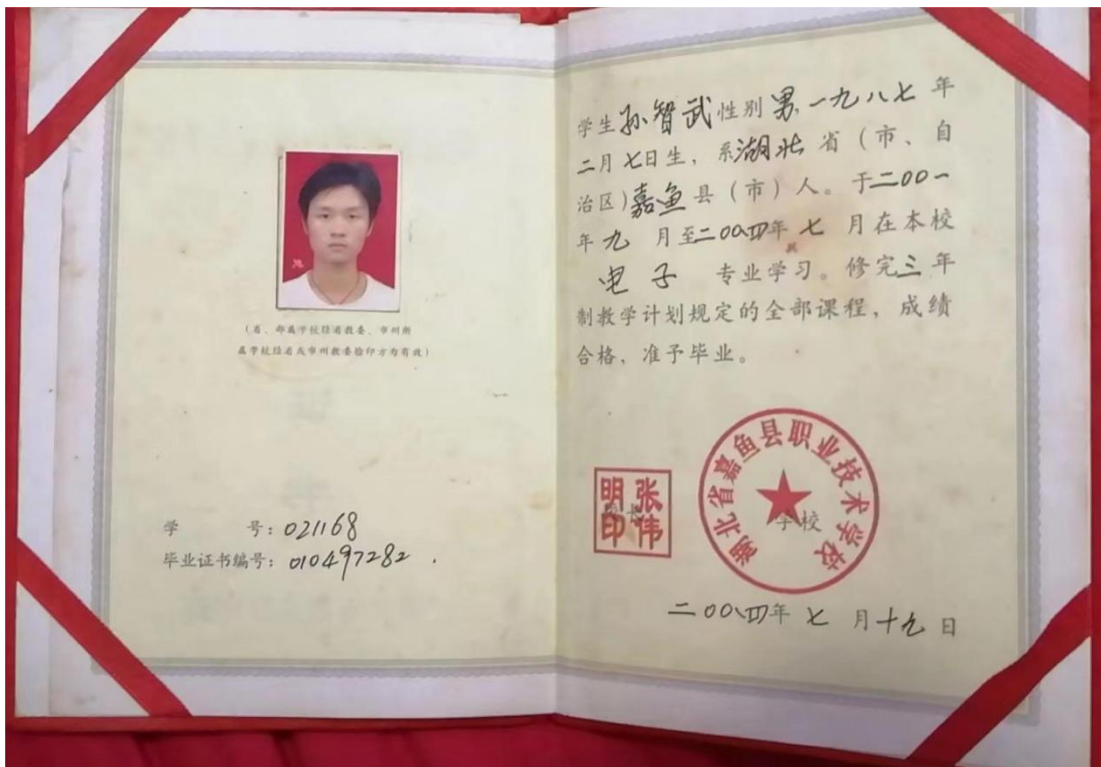 (省、部属学校经省教委、市州所
属学校经省或市州教委验印方为有效)
学 号:021168
毕业证书编号:010497282.
学生孙智武性别男,一九八七年
二月七日生,系湖北省(市、自
治区)嘉鱼县(市)人。于二00一
年九月至二00四年七月在本校
电子 专业学习。修完三年
制教学计划规定的全部课程,成绩
合格,准予毕业。
张伟
明印
校长
湖北省嘉鱼县职业技术学校
学校
二00四年七月十九日